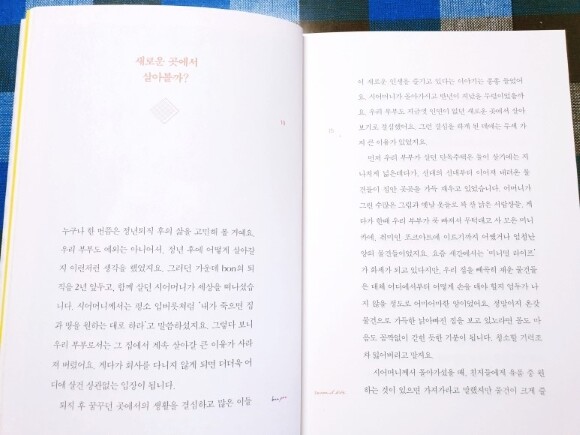 새로운 곳에서
살아볼까?
누구나 한 번쯤은 정년퇴직 후의 삶을 고민해 볼 거예요.
우리 부부도 예외는 아니어서, 정년 후에 어떻게 살아갈
지 이런저런 생각을 했었지요. 그러던 가운데 bon의 퇴
직을 2년 앞두고, 함께 살던 시어머니가 세상을 떠나셨습
니다. 시어머니께서는 평소 입버릇처럼 '내가 죽으면 집
과 땅을 원하는 대로 하라'고 말씀하셨지요. 그렇다 보니
우리 부부로서는 그 집에서 계속 살아갈 큰 이유가 사라
져 버렸어요. 게다가 회사를 다니지 않게 되면 더더욱 어
디에 살건 상관없는 입장이 됩니다.
퇴직 후 꿈꾸던 곳에서의 생활을 결심하고 많은 이들
이 새로운 인생을 즐기고 있다는 이야기는 종종 들었어
요. 시어머니가 돌아가시고 반년이 지났을 무렵이었을까
요. 우리 부부도 지금껏 인연이 없던 새로운 곳에서 살아
보기로 결심했어요. 그런 결심을 하게 된 데에는 두세 가
지 큰 이유가 있었지요.
먼저 우리 부부가 살던 단독주택은 둘이 살기에는 지
나치게 넓은데다가, 선대의 선대부터 이어져 내려온 물
건들이 집안 곳곳을 가득 채우고 있었습니다. 어머니가
그린 수많은 그림과 옛날 옷들로 꽉 찬 낡은 서랍장들, 게
다가 한때 우리 부부가 푹 빠져서 무턱대고 사 모은 미니
카에, 취미인 포크아트에 이르기까지 어쨌거나 엄청난
양의 물건들이었지요. 요즘 세간에서는 '미니멀 라이프'
가 화제가 되고 있다지만, 우리 집을 빼곡히 채운 물건들
은 대체 어디에서부터 어떻게 손을 대야 할지 엄두가 나
지 않을 정도로 어마어마한 양이었어요. 정말이지 온갖
물건으로 가득한 낡아빠진 집을 보고 있노라면 몸도 마
음도 꼼짝없이 갇힌 듯한 기분이 됩니다. 청소할 기력조
차 잃어버리고 말게요.
시어머니께서 돌아가셨을 때, 친지들에게 유품 중 원
하는 것이 있으면 가져가라고 말했지만 물건이 크게 줄